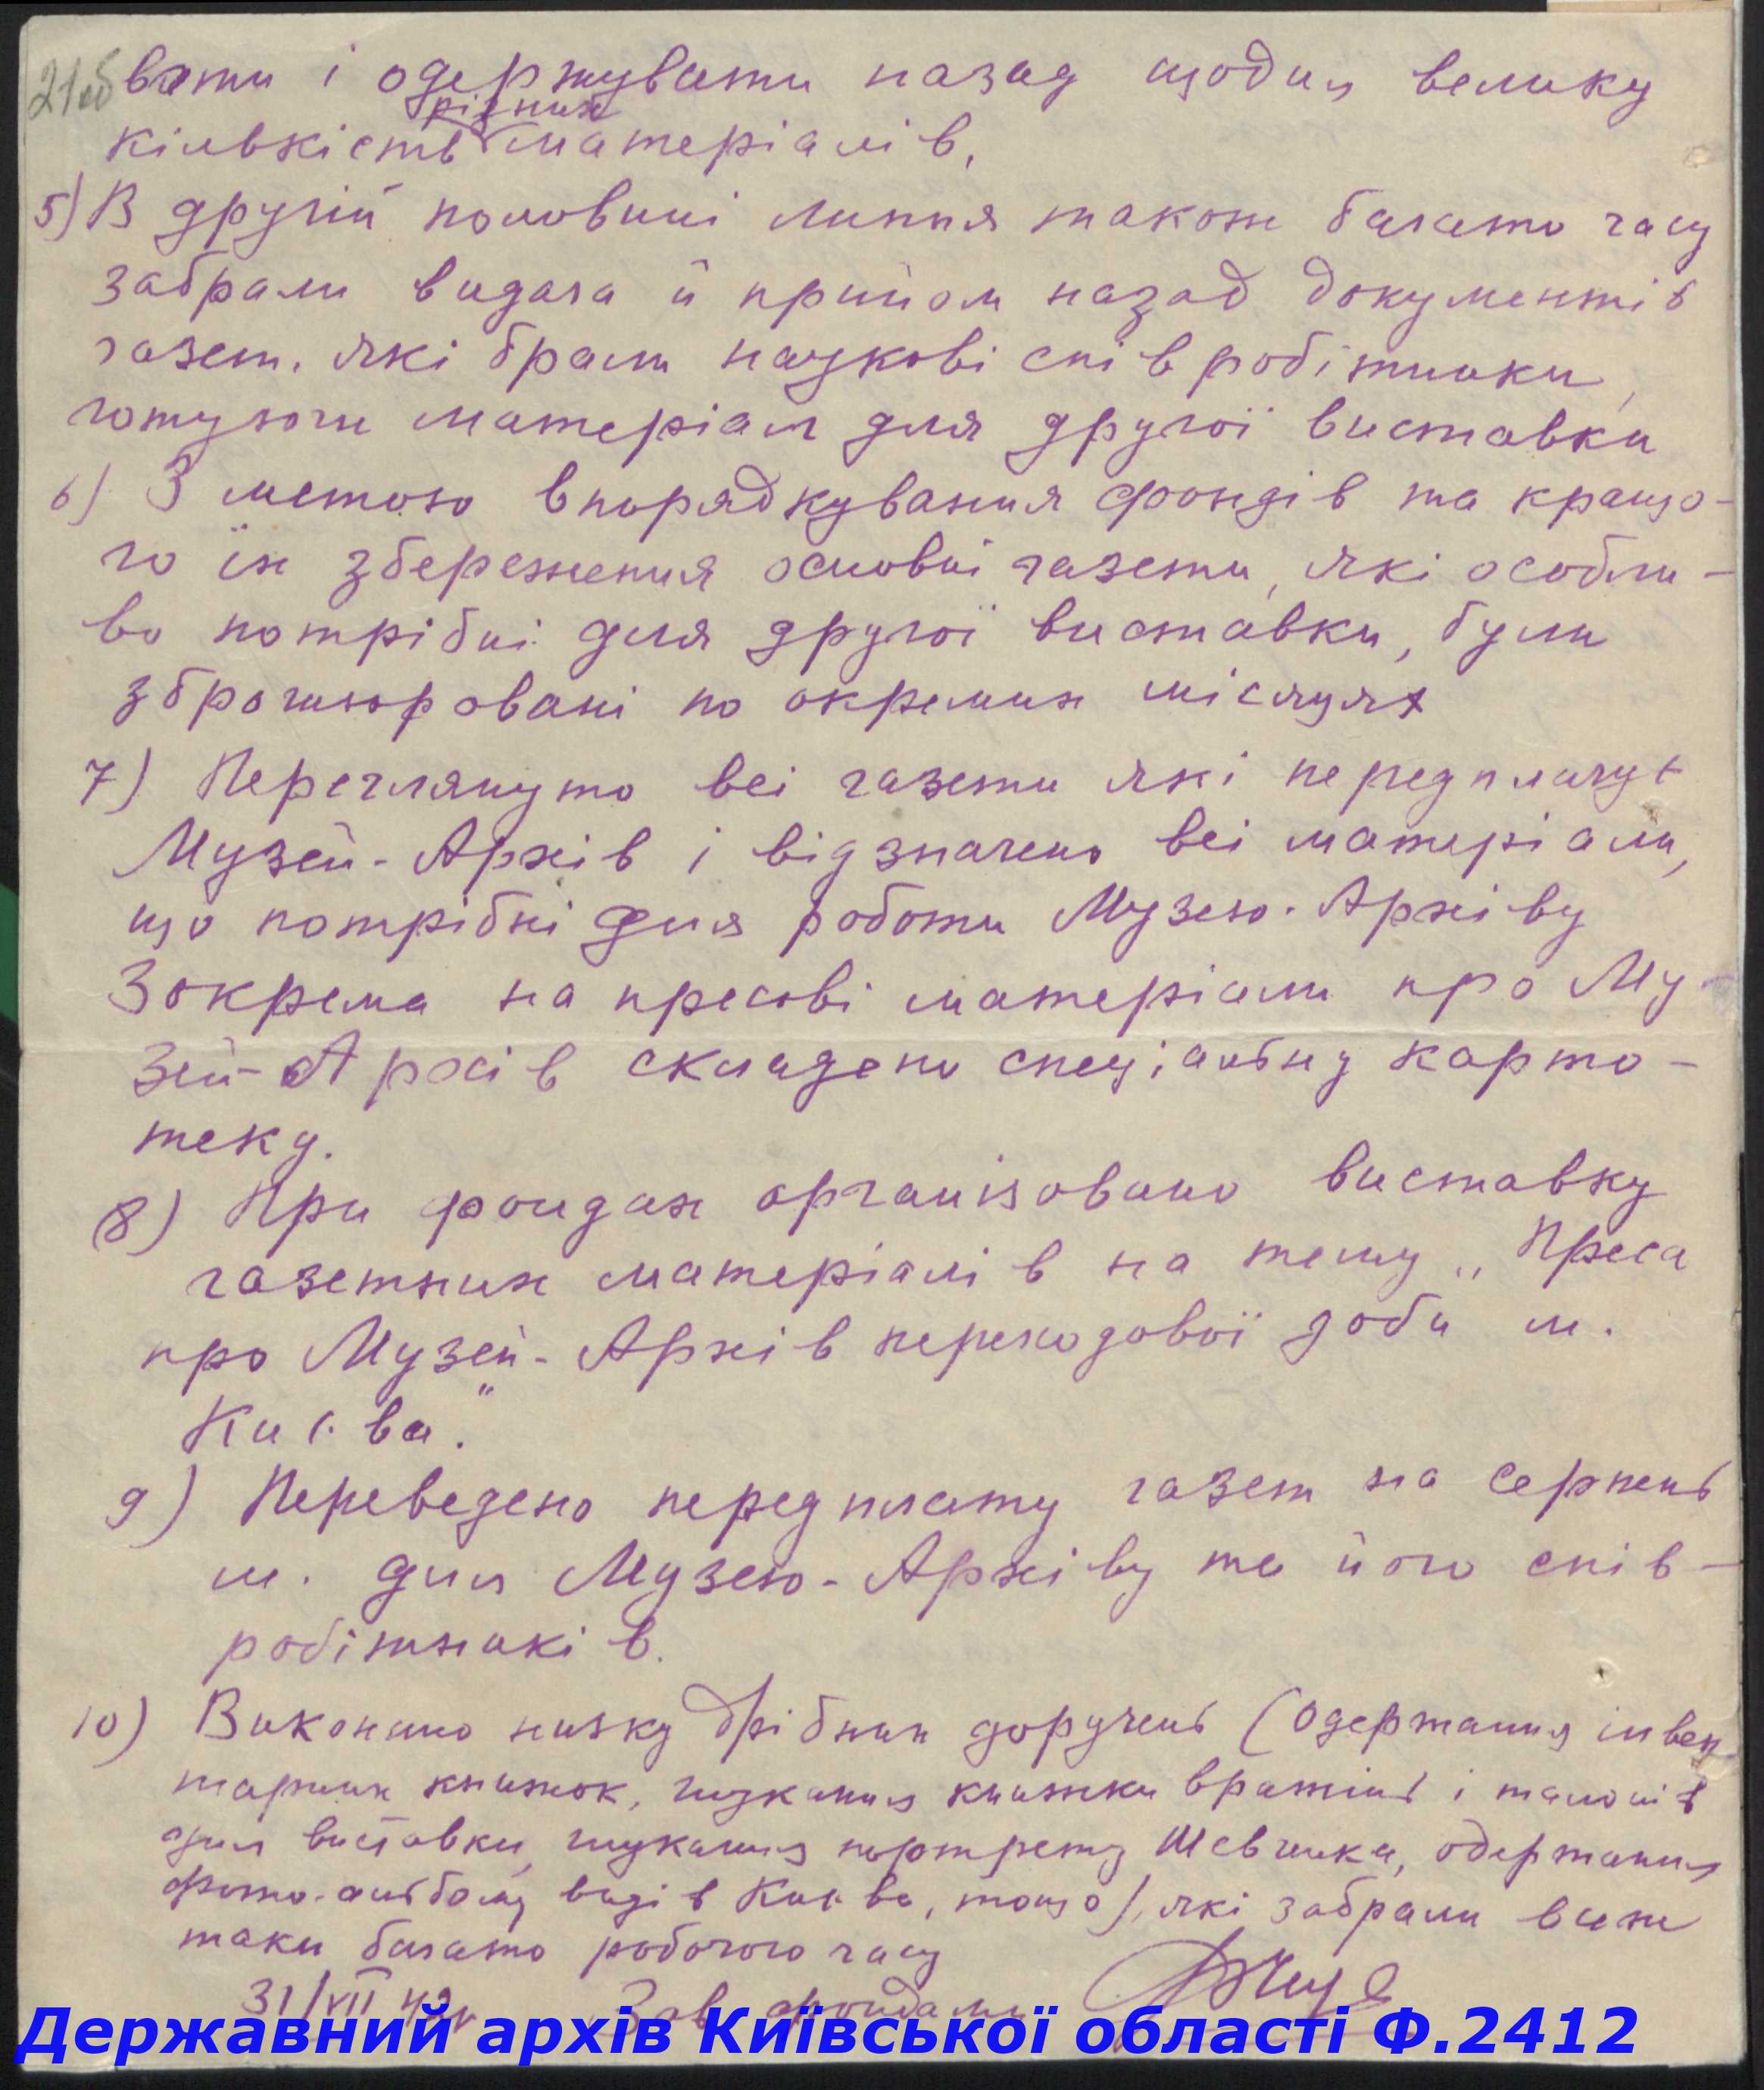 21об
вати і одержувати назад щодня велику
різних
кількість матеріалів,
5) В другій половині липня також багато часу
забрали видача й прийом назад документів
газет, які брали наукові співробітники,
готуючи матеріал для другої виставки
6) З метою впорядкування фондів та кращо-
го їх збереження основні газети, які особли-
во потрібні для другої виставки, були
зброшюровані по окремих місяцях
7) Переглянуто всі газети які передплачує
Музей-Архів і відзначено всі матеріали,
що потрібні для роботи Музею-Архіву
Зокрема на пресові матеріали про Му-
зей-Архів складено спеціальну карто-
теку.
8) При фондах організовано виставку
газетних матеріалів на тему „Преса
про Музей-Архів переходової доби м.
Києва".
9) Переведено передплату газет на серпень
м. для Музею-Архіву та його спів-
робітників.
10) Виконано низку дрібних доручень (Одержання інвен-
тарних книжок, шукання книжки вражінь і талонів
для виставки, шукання портрету Шевченка, одержання
фото-альбому видів Києва, тощо), які забрали все ж
таки багато робочого часу
31/VII 42р Зав. фондами
Державний архів Київської області Ф.2412